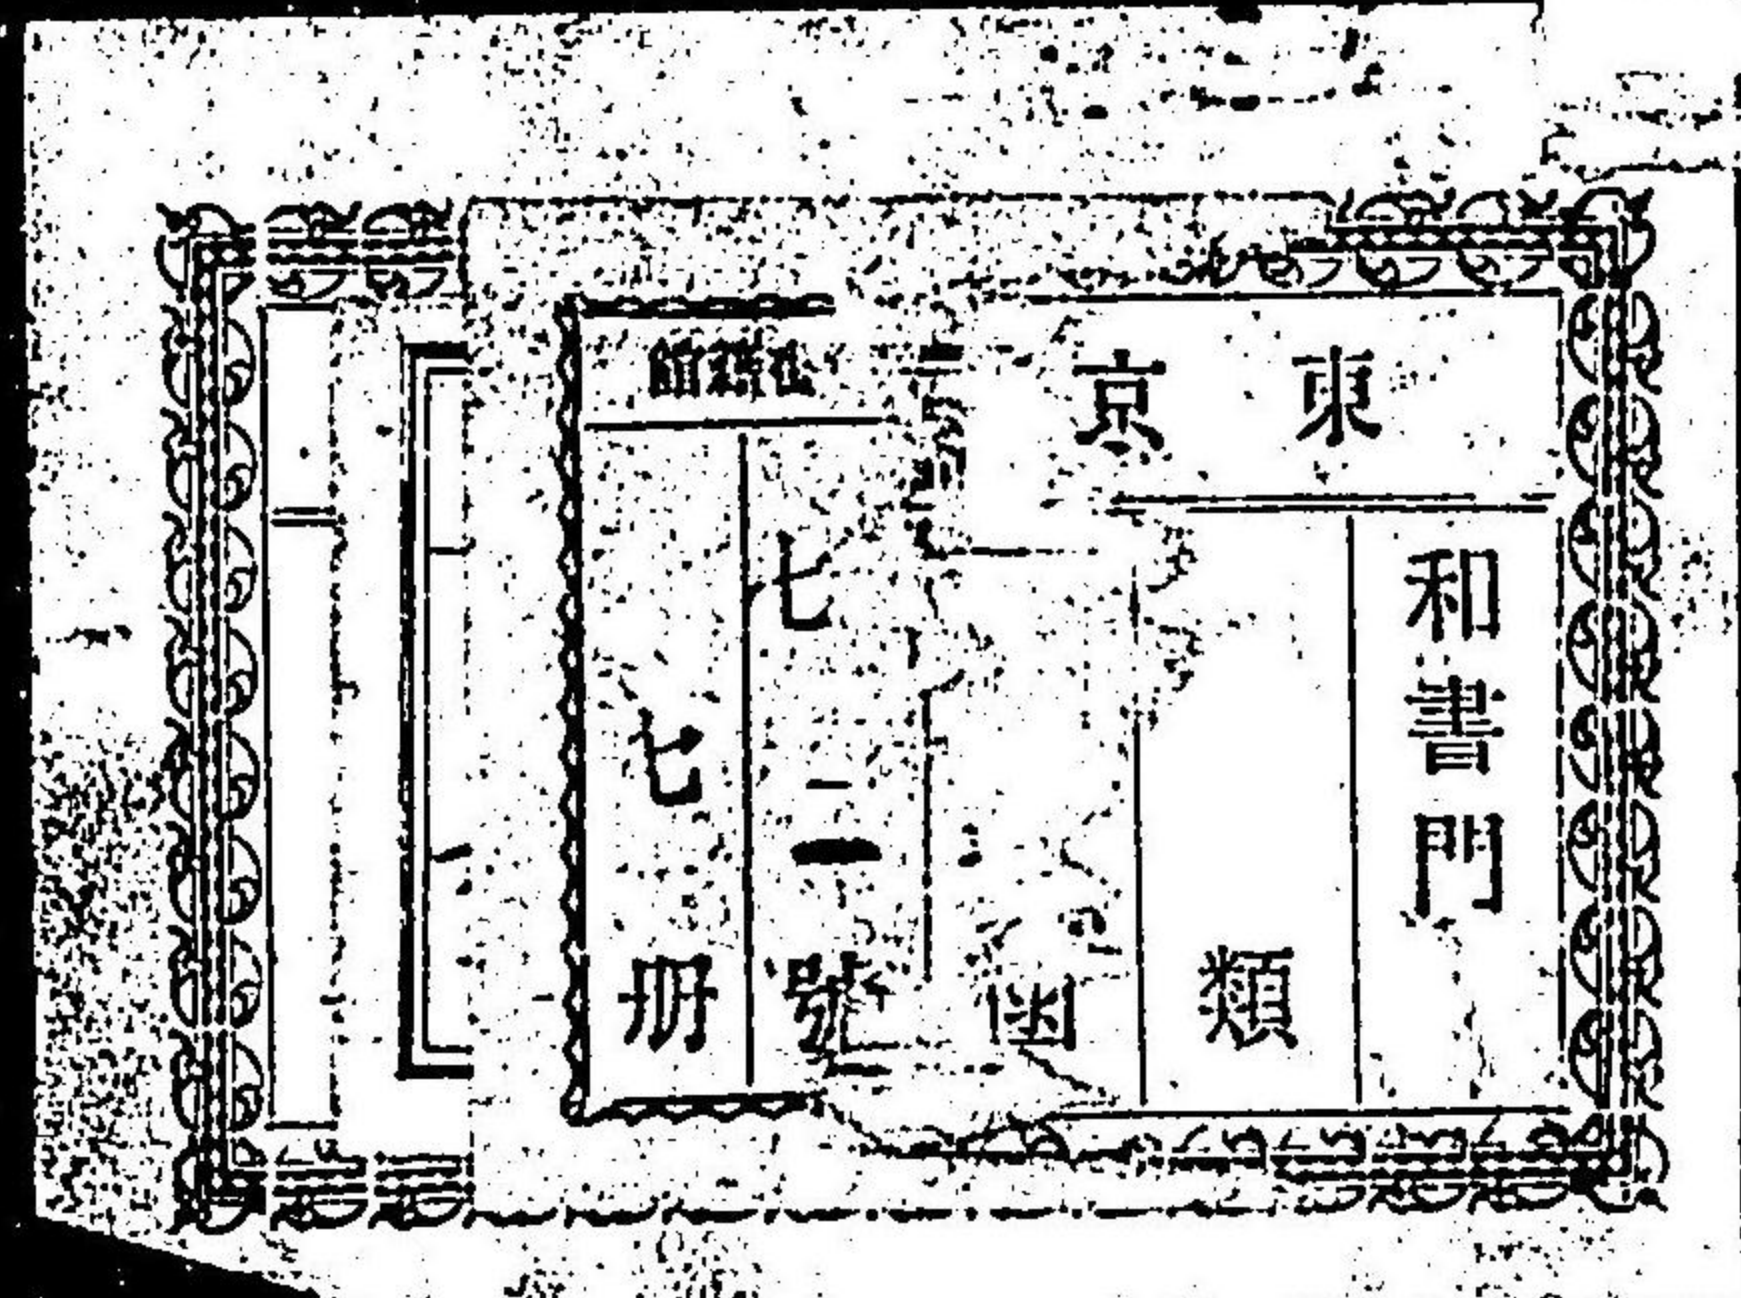 東京
和書門
類
函
七二一號
七冊